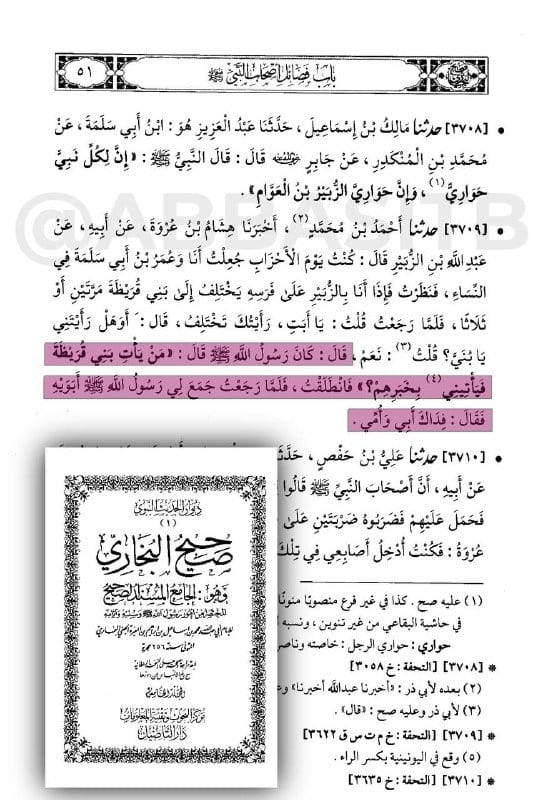 باب فضائل أصحاب النبي ﷺ
٥١
• [٣٧٠٨] حدثنا مَالِكُ بْنُ إِسْمَاعِيلَ، حَدَّثَنَا عَبْدُ الْعَزِيزِ هُوَ: ابْنُ أَبِي سَلَمَةَ، عَنْ
مُحَمَّدِ بْنِ الْمُنْكَدِرِ، عَنْ جَابِرٍ رضي الله عنه قَالَ: قَالَ النَّبِيُّ ﷺ: «إِنَّ لِكُلِّ نَبِيٍّ
حَوَارِيَّ(١)، وَإِنَّ حَوَارِيَّ الزُّبَيْرُ بْنُ الْعَوَّامِ».
@ABBASITB
• [٣٧٠٩] حدثنا أَحْمَدُ بْنُ مُحَمَّدٍ(٢)، أَخْبَرَنَا هِشَامُ بْنُ عُرْوَةَ، عَنْ أَبِيهِ، عَنْ
عَبْدِ اللَّهِ بْنِ الزُّبَيْرِ قَالَ: كُنْتُ يَوْمَ الْأَحْزَابِ جُعِلْتُ أَنَا وَعُمَرُ بْنُ أَبِي سَلَمَةَ فِي
النِّسَاءِ، فَنَظَرْتُ فَإِذَا أَنَا بِالزُّبَيْرِ عَلَى فَرَسِهِ يَخْتَلِفُ إِلَى بَنِي قُرَيْظَةَ مَرَّتَيْنِ أَوْ
ثَلَاثًا، فَلَمَّا رَجَعْتُ قُلْتُ: يَا أَبَتِ، رَأَيْتُكَ تَخْتَلِفُ، قَالَ: أَوَهَلْ رَأَيْتَنِي
يَا بُنَيَّ؟ قُلْتُ(٣): نَعَمْ، قَالَ: كَانَ رَسُولُ اللَّهِ ﷺ قَالَ: «مَنْ يَأْتِ بَنِي قُرَيْظَةَ
فَيَأْتِينِي(٤) بِخَبَرِهِمْ؟» فَانْطَلَقْتُ، فَلَمَّا رَجَعْتُ جَمَعَ لِي رَسُولُ اللَّهِ ﷺ أَبَوَيْهِ
فَقَالَ: فِدَاكَ أَبِي وَأُمِّي.
• [٣٧١٠] حدثنا عَلِيُّ بْنُ حَفْصٍ،
عَنْ أَبِيهِ، أَنَّ أَصْحَابَ النَّبِيِّ ﷺ قَالُوا
فَحَمَلَ عَلَيْهِمْ فَضَرَبُوهُ ضَرْبَتَيْنِ عَلَى
عُرْوَةُ: فَكُنْتُ أُدْخِلُ أَصَابِعِي فِي تِلْكَ
(١) عليه صح. كذا في غير فرع منصوبًا منونًا
في حاشية البقاعي من غير تنوين، ونسبه
حواري: حواري الرجل: خاصته وناصر
* [٣٧٠٨] [التحفة: خ ٣٠٥٨]
(٢) بعده لأبي ذر: «أخبرنا عبدالله أخبرنا»
(٣) لأبي ذر وعليه صح: «قال».
* [٣٧٠٩] [التحفة: خ م ت س ق ٣٦٢٢]
(٥) وقع في اليونينية بكسر الراء.
* [٣٧١٠] [التحفة: خ ٣٦٣٥]
ديوان الحديث النبوي
(١)
صحيح البخاري
وهو: الجامع المسند الصحيح
مركز البحوث وتقنية المعلومات
دار التأصيل